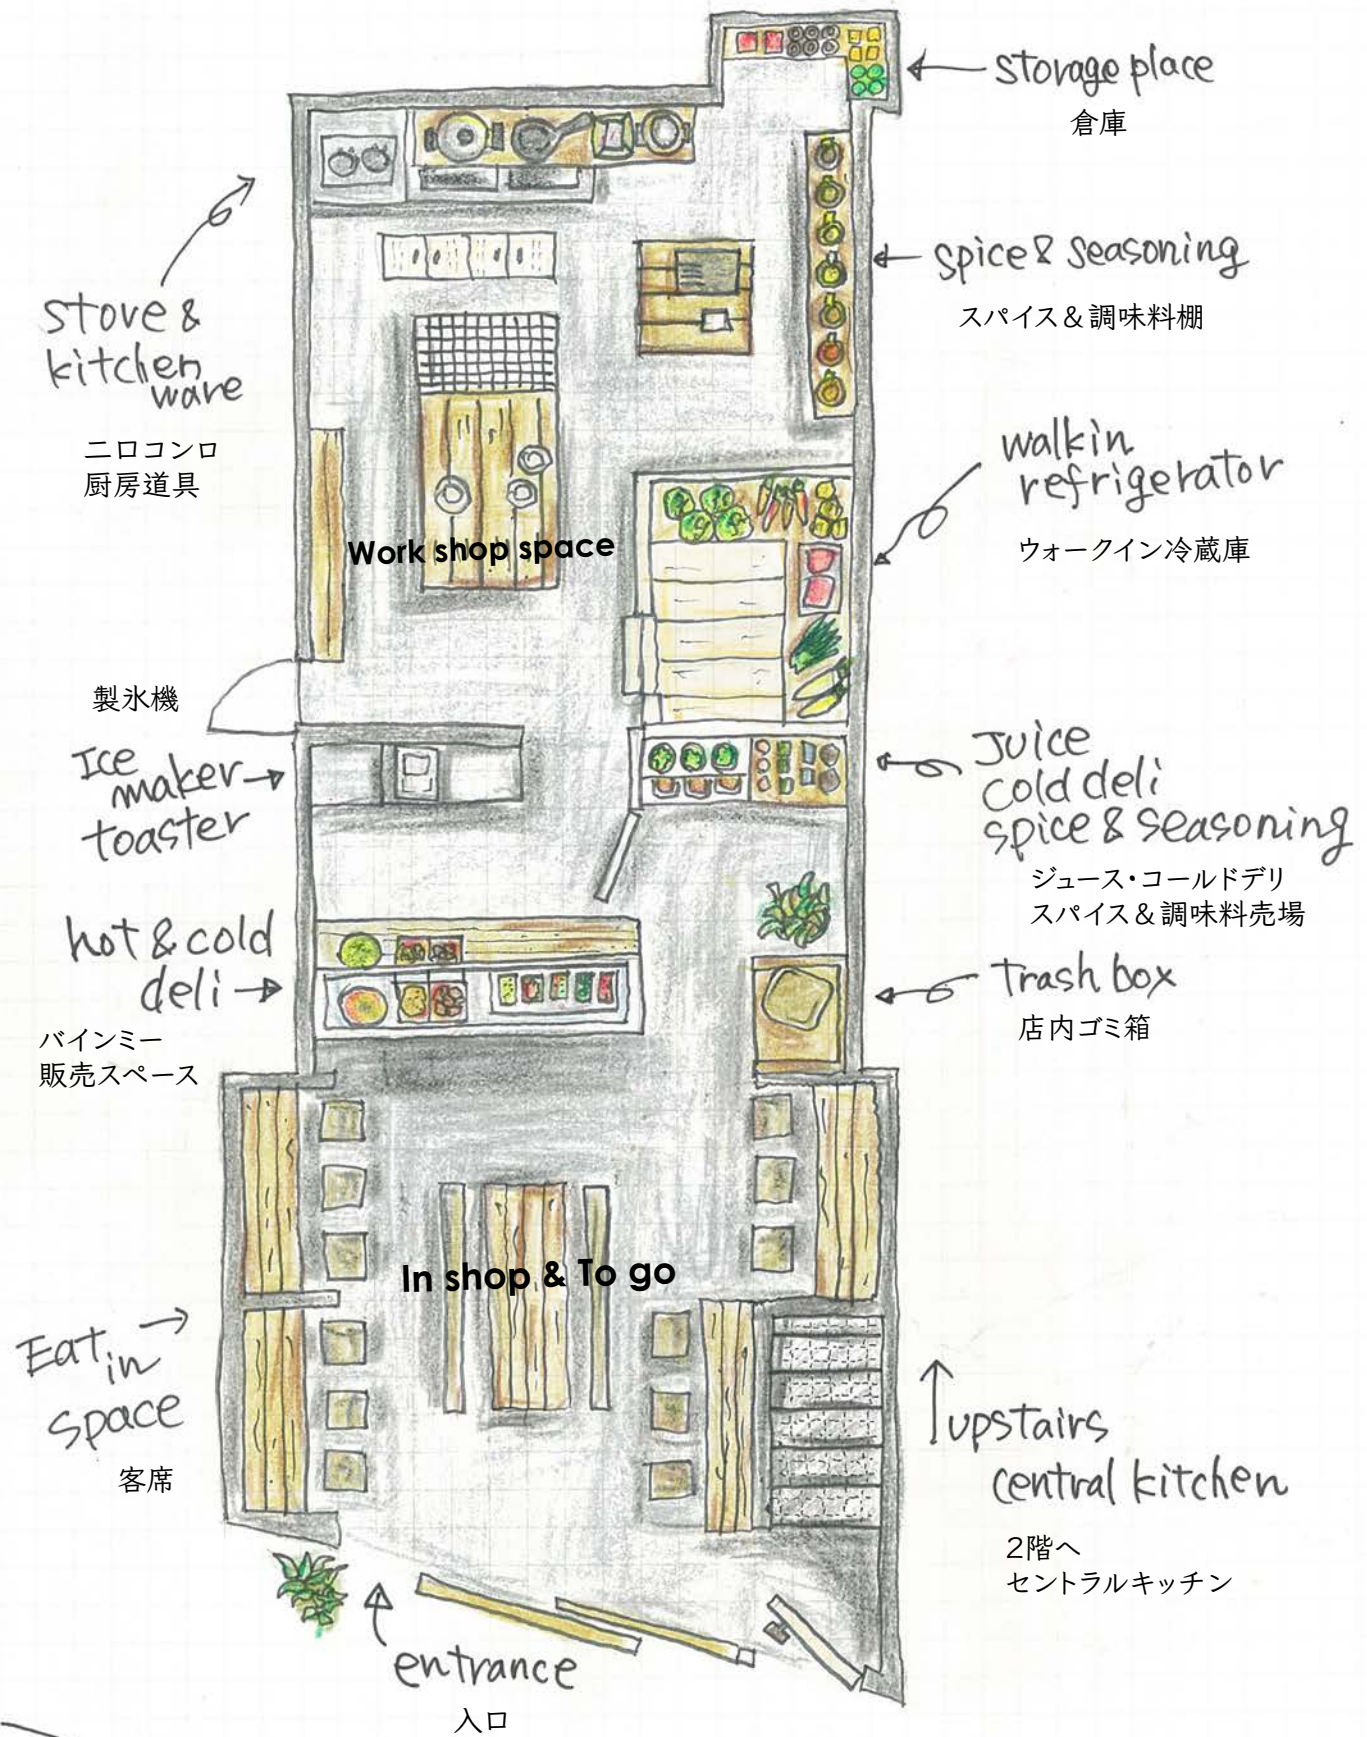 storage place
倉庫
spice & seasoning
スパイス＆調味料棚
stove &
kitchen
ware
二口コンロ
厨房道具
walkin
refrigerator
ウォークイン冷蔵庫
Work shop space
製氷機
Ice
maker
toaster
Juice
cold deli
spice & seasoning
ジュース・コールドデリ
スパイス＆調味料売場
hot & cold
deli
バインミー
販売スペース
Trash box
店内ゴミ箱
In shop & To go
Eat in
space
客席
upstairs
central kitchen
2階へ
セントラルキッチン
entrance
入口